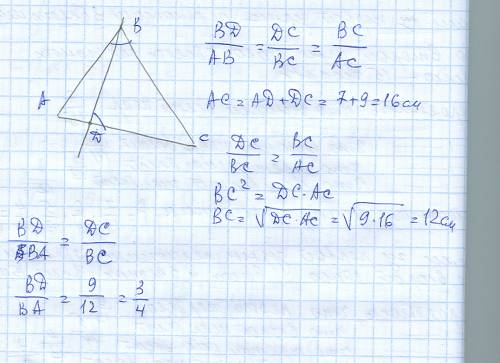 B
A
D
C
BD/AB = DC/BC = BC/AC
AC = AD + DC = 7 + 9 = 16 см
DC/BC = BC/AC
BC² = DC · AC
BC = √(DC · AC) = √(9 · 16) = 12 см
BD/BA = DC/BC
BD/BA = 9/12 = 3/4